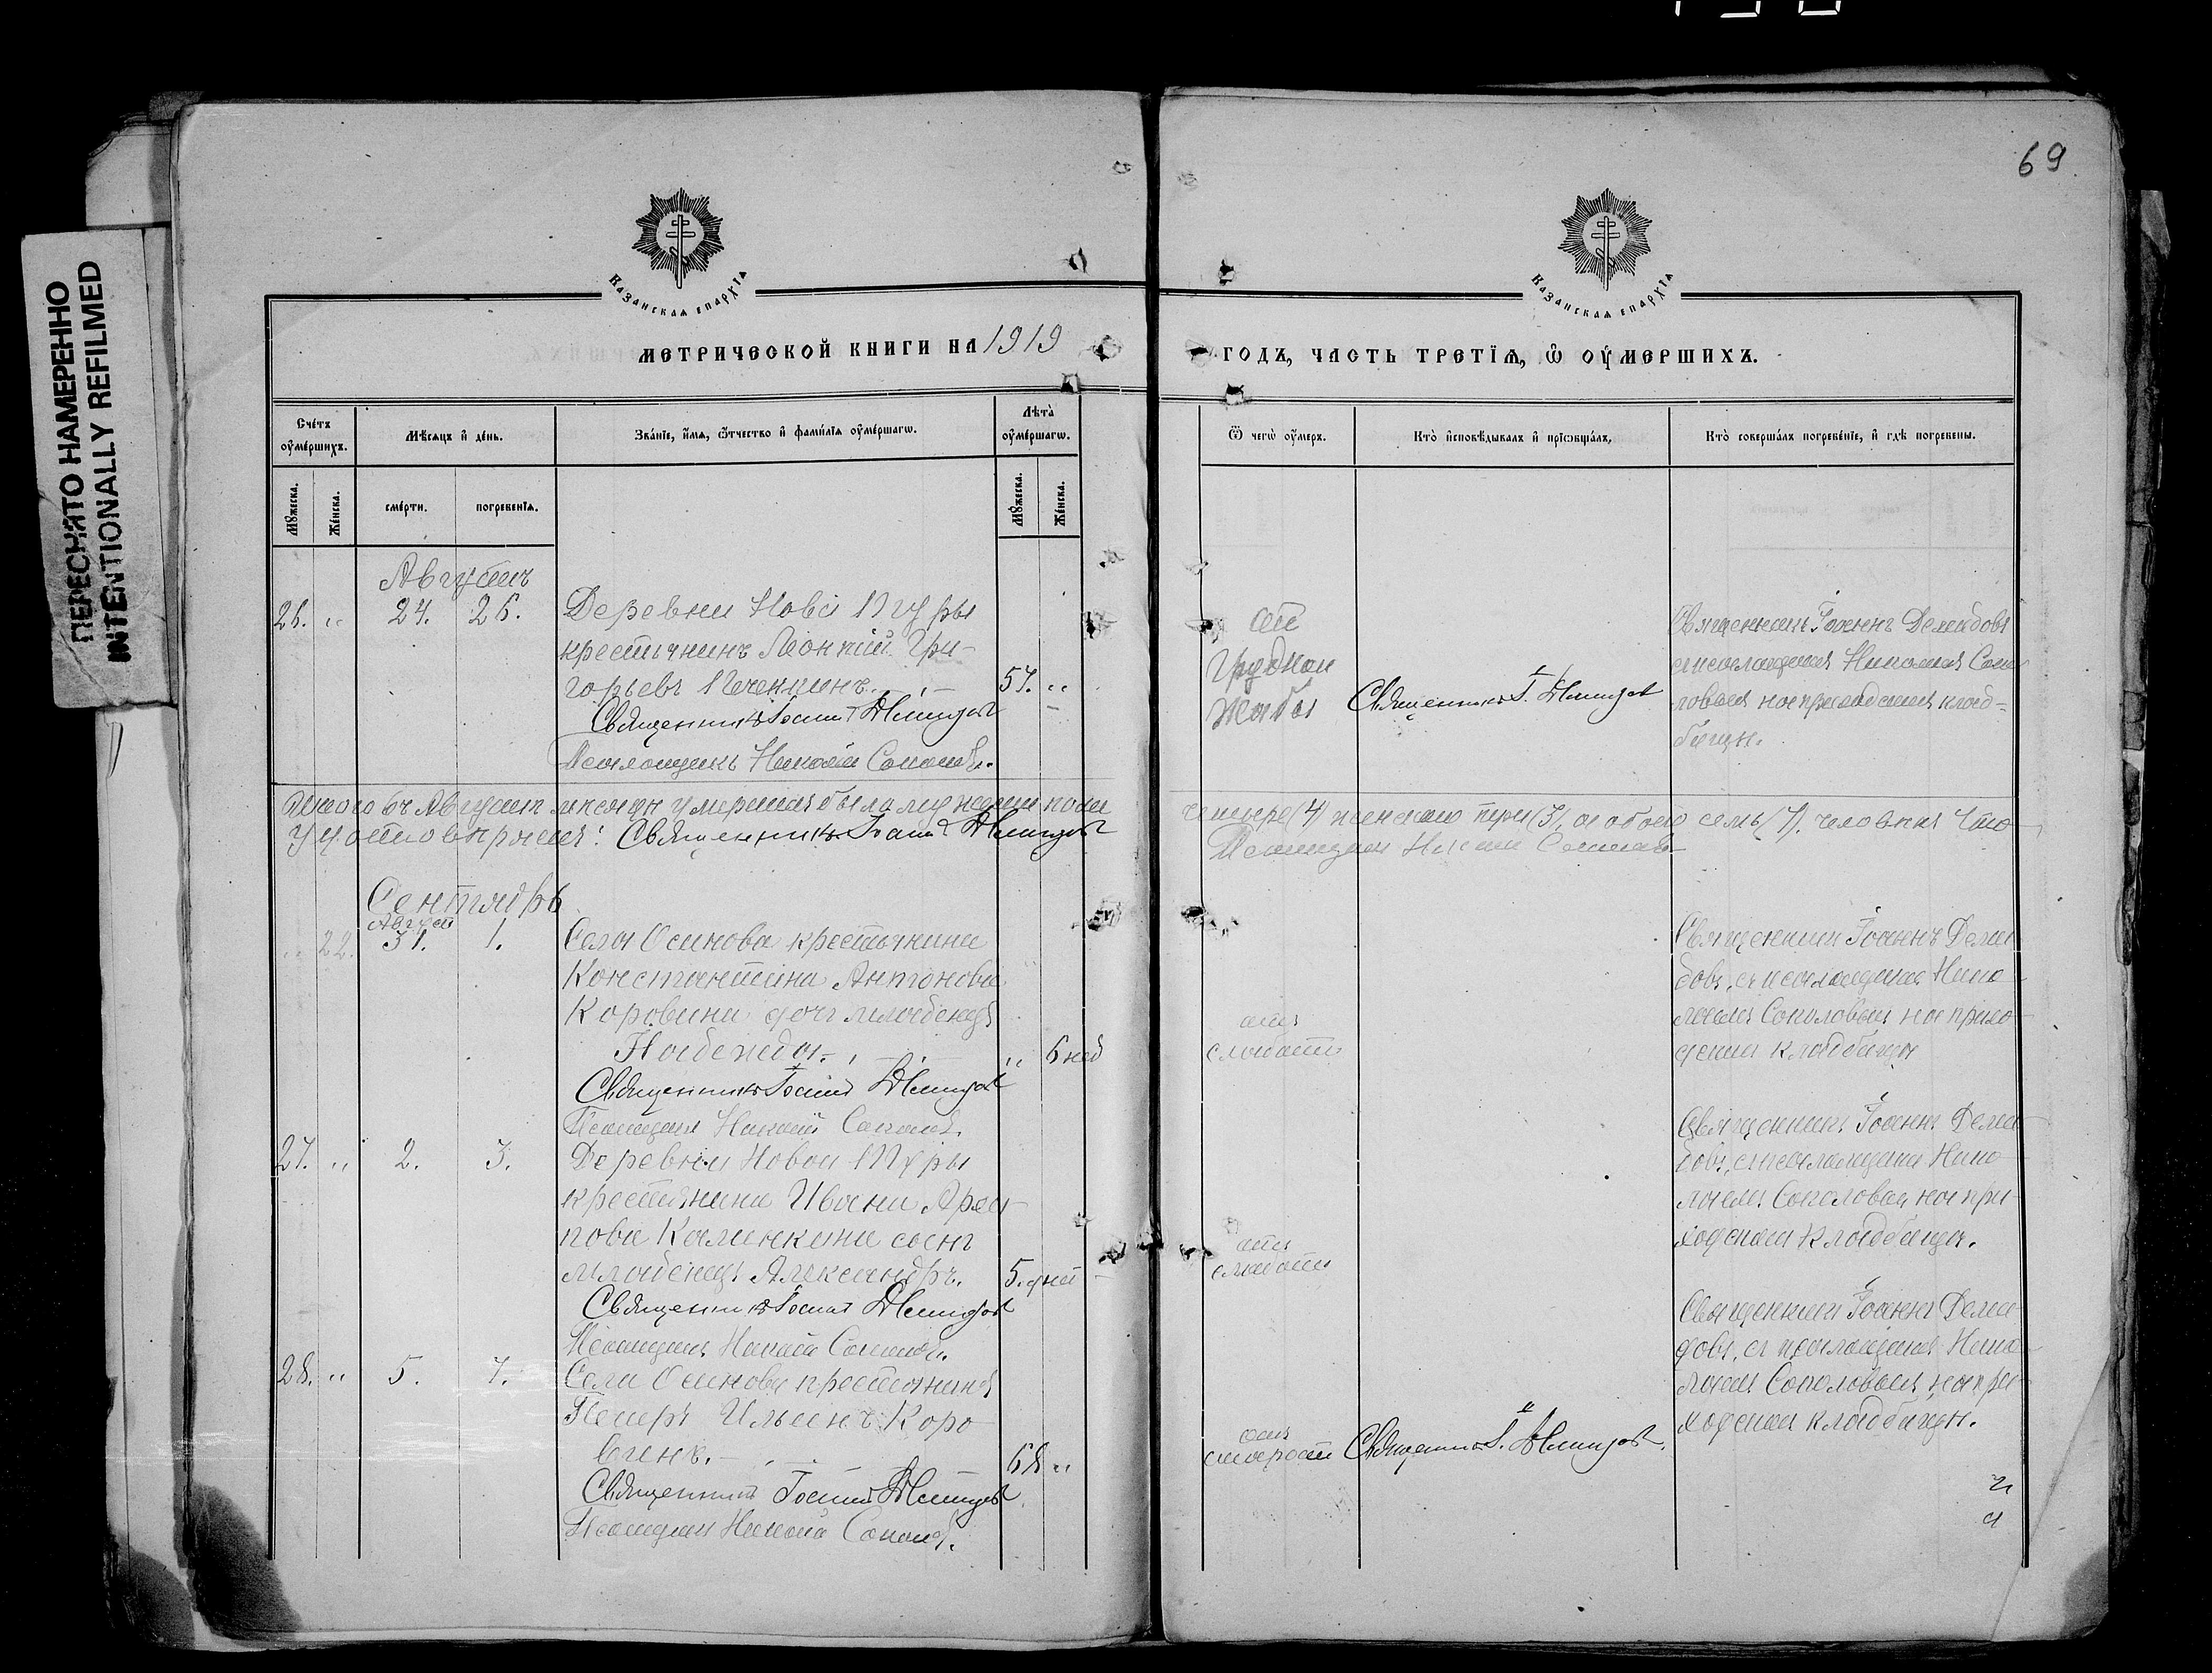 69
ПЕРЕСНЯТО НАМЕРЕННО
INTENTIONALLY REFILMED
Казанская епархїя
Казанская епархїя
МЕТРИЧЕСКОЙ КНИГИ НА 1919
ГОДЪ, ЧАСТЬ ТРЕТЇѦ, Ѿ ОУМЕРШИХЪ.
Счетъ оумершихъ.
Мѣсяцъ и день.
Званїе, имя, отчество и фамилїя оумершагѡ.
Лѣта оумершагѡ.
Ѿ чегѡ оумеръ.
Кто исповѣдывалъ и прїѡбщалъ.
Кто совершалъ погребенїе, и гдѣ погребены.
Мужеска.
Женска.
смерти.
погребенїя.
Мужеска.
Женска.
Августъ
26. " 24. 26. Деревни Новой
крестьянинъ Леонтій Гри-
горьевъ 57. "
Священникъ Іоаннъ Демидовъ
Псаломщикъ Николай Соколовъ.
отъ
грудной
жабы
Священникъ І. Демидовъ
Священникъ Іоаннъ Демидовъ
съ псаломщикомъ Николаемъ Соко-
ловымъ на приходскомъ клад-
бищѣ.
Итого въ Августѣ мѣсяцѣ умершихъ было мужескаго пола
четыре (4) женскаго три (3), а обоего семь (7) человѣкъ Что
удостовѣряемъ: Священникъ Іоаннъ Демидовъ
Псаломщикъ Николай Соколовъ
Сентябрь
Август
" 22. 31. 1. Села Осинова крестьянина
Константина Антонова
Коровина дочь младенецъ
Надежда. " 6 нед
Священникъ Іоаннъ Демидовъ
Псаломщикъ Николай Соколовъ.
отъ
слабости
Священникъ Іоаннъ Деми-
довъ, съ псаломщикомъ Нико-
лаемъ Соколовымъ на прихо-
дскомъ кладбищѣ
27. " 2. 3. Деревни Новой
крестьянина Ивана
Калинкина сынъ
младенецъ Александръ. 5. дней
Священникъ Іоаннъ Демидовъ
Псаломщикъ Николай Соколовъ.
отъ
слабости
Священникъ Іоаннъ Деми-
довъ, съ псаломщикомъ Нико-
лаемъ Соколовымъ, на при-
ходскомъ кладбищѣ.
28. " 5. 7. Села Осинова крестьянинъ
Петръ Ильинъ Коро-
винъ. 68 "
Священникъ Іоаннъ Демидовъ
Псаломщикъ Николай Соколовъ.
отъ
старости
Священникъ І. Демидовъ.
Священникъ Іоаннъ Деми-
довъ, съ псаломщикомъ Нико-
лаемъ Соколовымъ, на при-
ходскомъ кладбищѣ.